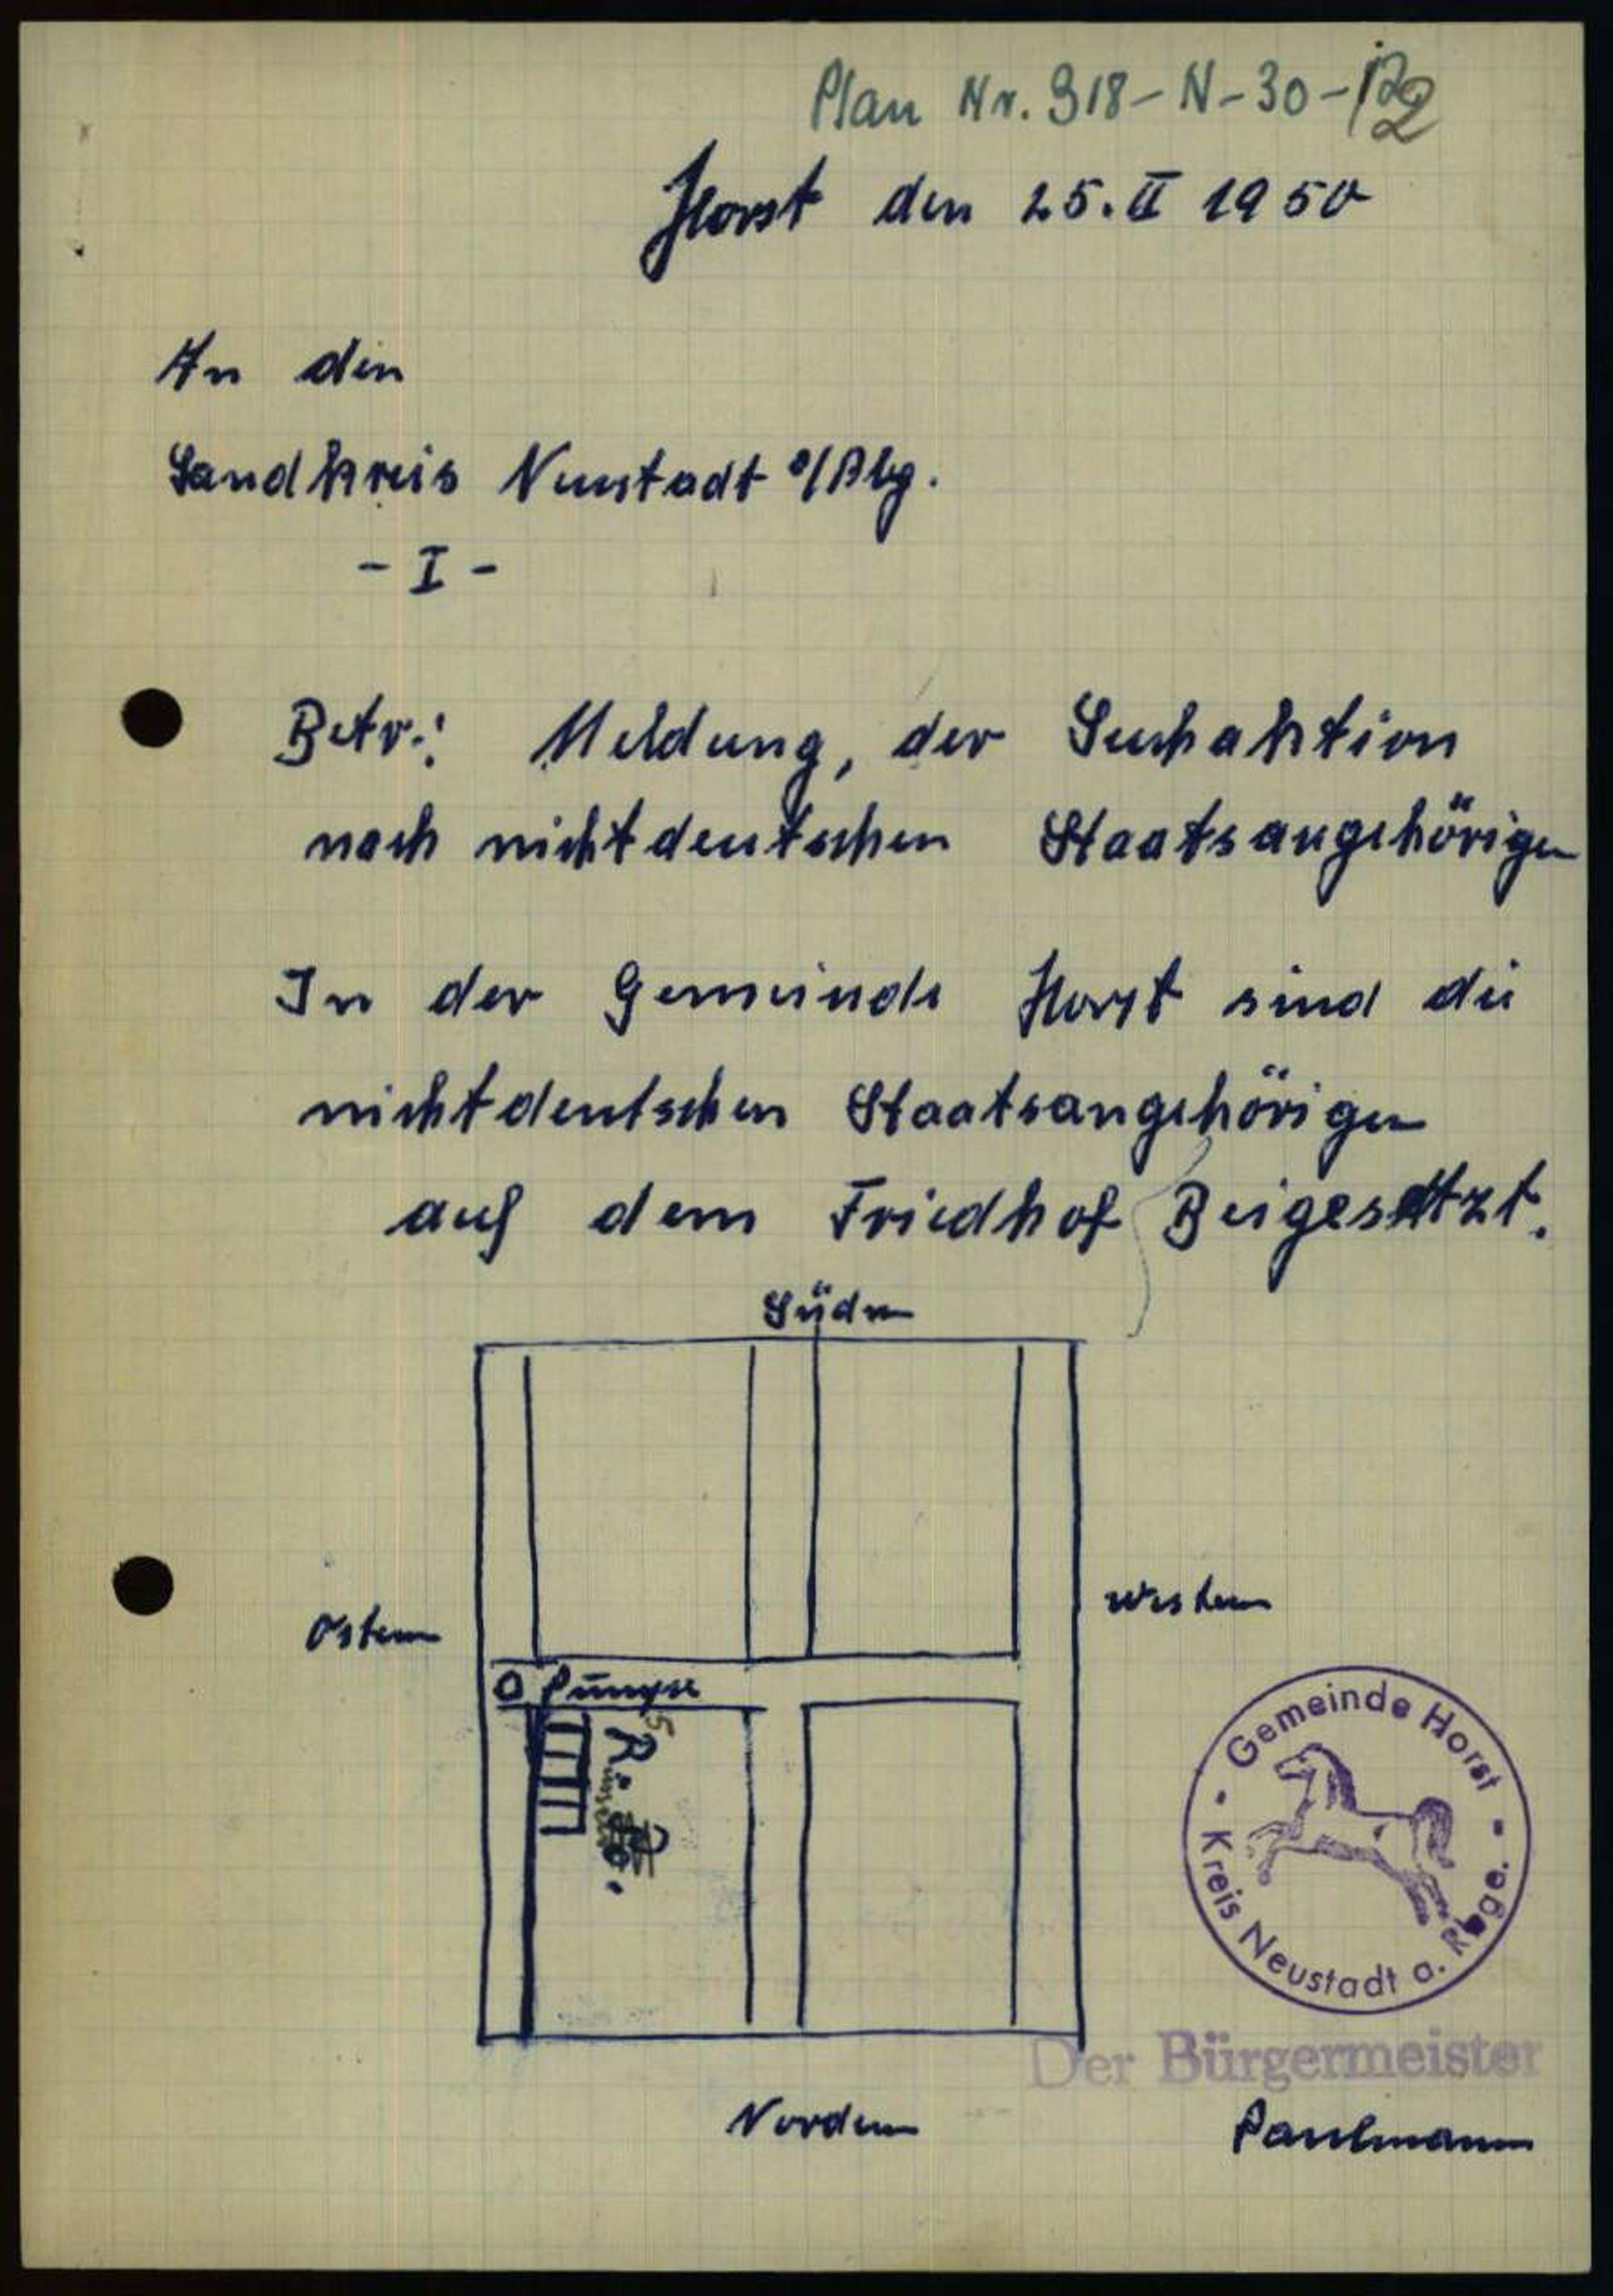 Plan Nr. 318-N-30-R2
Horst den 25. II 1950
An den
Landkreis Neustadt a/Rbg.
- I -
Betr.: Meldung, der Suchaktion
nach nichtdeutschen Staatsangehörigen
In der Gemeinde Horst sind die
nichtdeutschen Staatsangehörigen
auf dem Friedhof Beigesetzt.
Süden
Osten
Westen
O Pumpe
5
Norden
Gemeinde Horst
Kreis Neustadt a. Rbge.
Der Bürgermeister
Paulmann